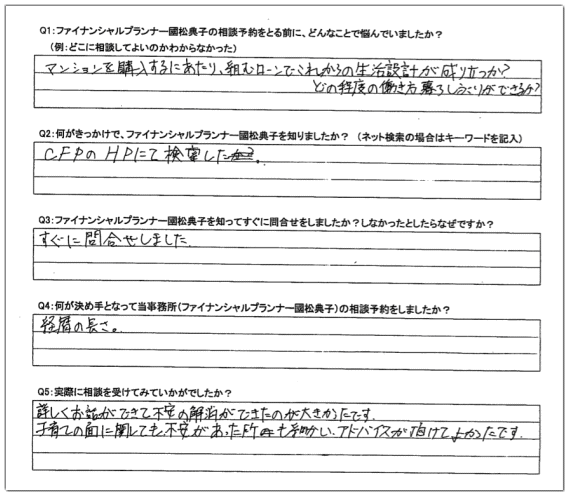 Q1:ファイナンシャルプランナー國松典子の相談予約をとる前に、どんなことで悩んでいましたか？
（例:どこに相談してよいのかわからなかった）
マンションを購入するにあたり、組むローンでこれからの生活設計が成り立つか?
どの程度の働き方暮らしぶりができるか?
Q2:何がきっかけで、ファイナンシャルプランナー國松典子を知りましたか？（ネット検索の場合はキーワードを記入）
CFPのHPにて検索した。
Q3:ファイナンシャルプランナー國松典子を知ってすぐに問合せをしましたか？しなかったとしたらなぜですか？
すぐに問合せしました
Q4:何が決め手となって当事務所（ファイナンシャルプランナー國松典子）の相談予約をしましたか？
経歴の長さ。
Q5:実際に相談を受けてみていかがでしたか？
詳しくお話ができて不安の解消ができたのが大きかったです。
子育ての面に関しても不安があった所も細かい、アドバイスが頂けてよかったです。